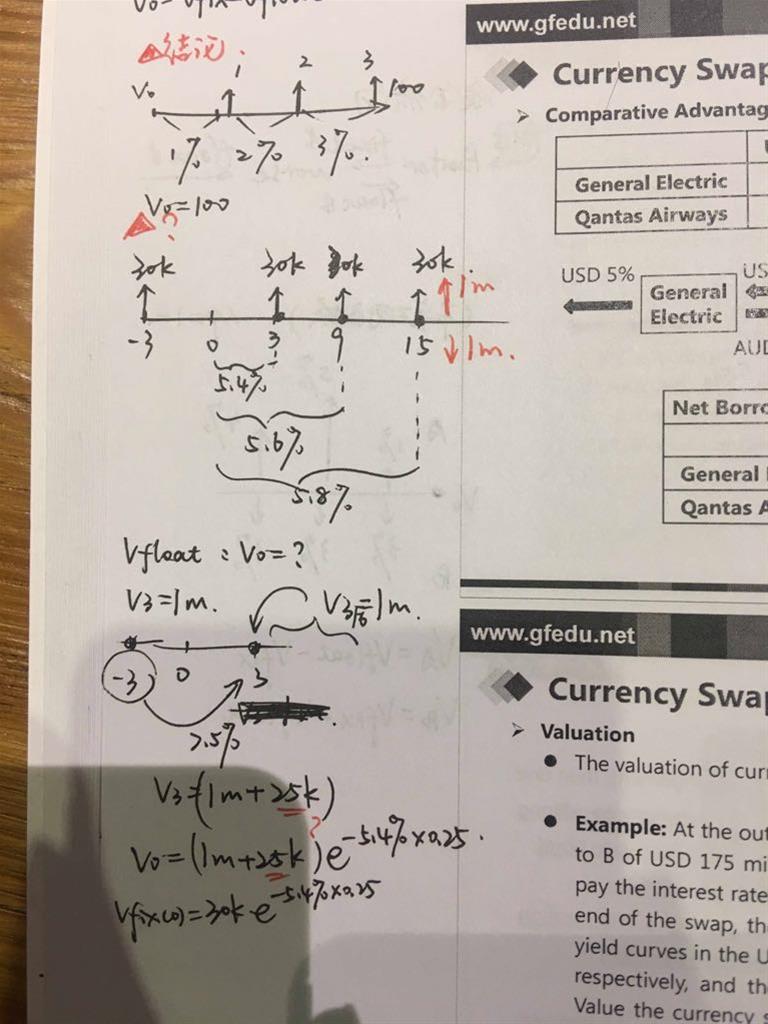 结论.
1 2 3
V₀ 100
1% 2% 3%.
V₀=100
?
30k 30k 30k 30k.
1m
-3 0 3 9 15 1m.
5.4%
5.6%
5.8%
Vfloat : V₀=?
V3=1m. V3后=1m.
-3 0 3
7.5%
V3=(1m+25k)
?
V₀=(1m+25k)e^-5.4%×0.25.
Vfix(0)=30k·e^-5.4%×0.25
www.gfedu.net
Currency Swap
➢ Comparative Advantag
General Electric
Qantas Airways
USD 5%
General
Electric
US
AUD
Net Borro
General
Qantas A
www.gfedu.net
Currency Swap
➢ Valuation
● The valuation of curr
● Example: At the out
to B of USD 175 mi
pay the interest rate
end of the swap, th
yield curves in the U
respectively, and th
Value the currency s